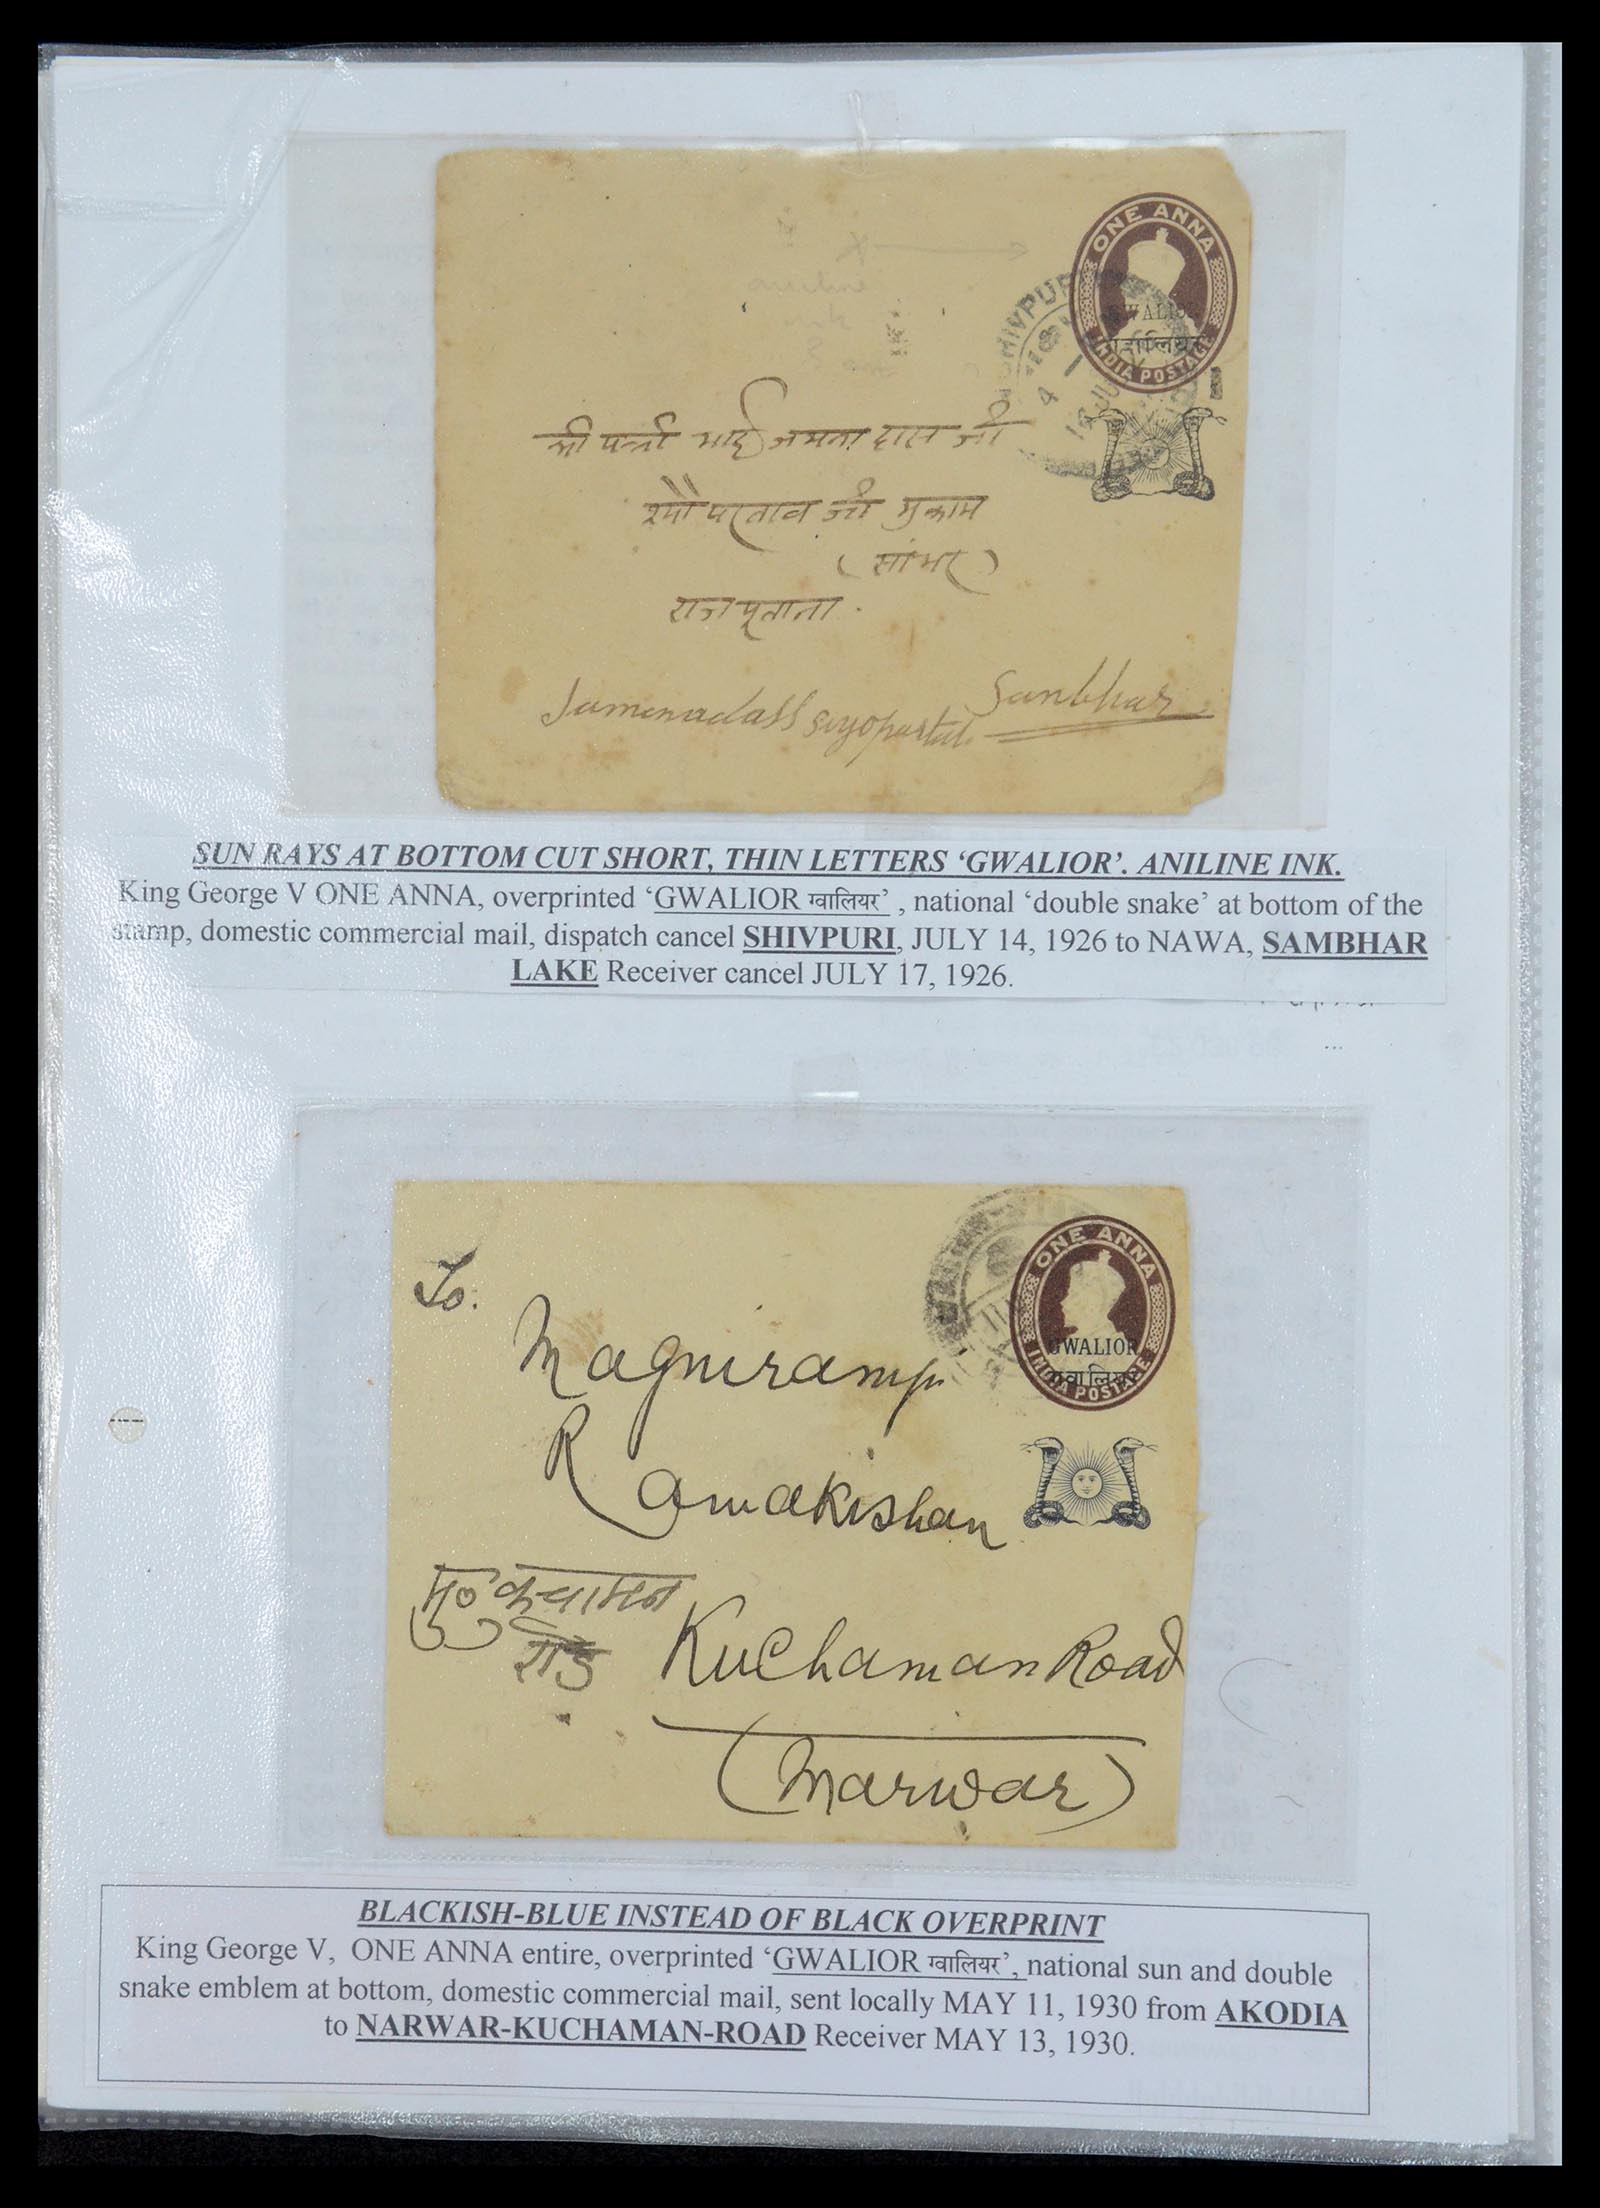 ONE ANNA
GWALIOR
INDIA POSTAGE
SHIVPUR
जमना दास जी
जी मुकाम
(सांभर)
राजपूताना.
Jamenadass Seyopartab Sambhar
SUN RAYS AT BOTTOM CUT SHORT, THIN LETTERS ‘GWALIOR’. ANILINE INK.
King George V ONE ANNA, overprinted ‘GWALIOR ग्वालियर’ , national ‘double snake’ at bottom of the
stamp, domestic commercial mail, dispatch cancel SHIVPURI, JULY 14, 1926 to NAWA, SAMBHAR
LAKE Receiver cancel JULY 17, 1926.
ONE ANNA
GWALIOR
INDIA POSTAGE
To.
Magniramji
Ramakishan
मु० कुचामन
रोड
Kuchaman Road
(Marwar)
BLACKISH-BLUE INSTEAD OF BLACK OVERPRINT
King George V, ONE ANNA entire, overprinted ‘GWALIOR ग्वालियर’, national sun and double
snake emblem at bottom, domestic commercial mail, sent locally MAY 11, 1930 from AKODIA
to NARWAR-KUCHAMAN-ROAD Receiver MAY 13, 1930.